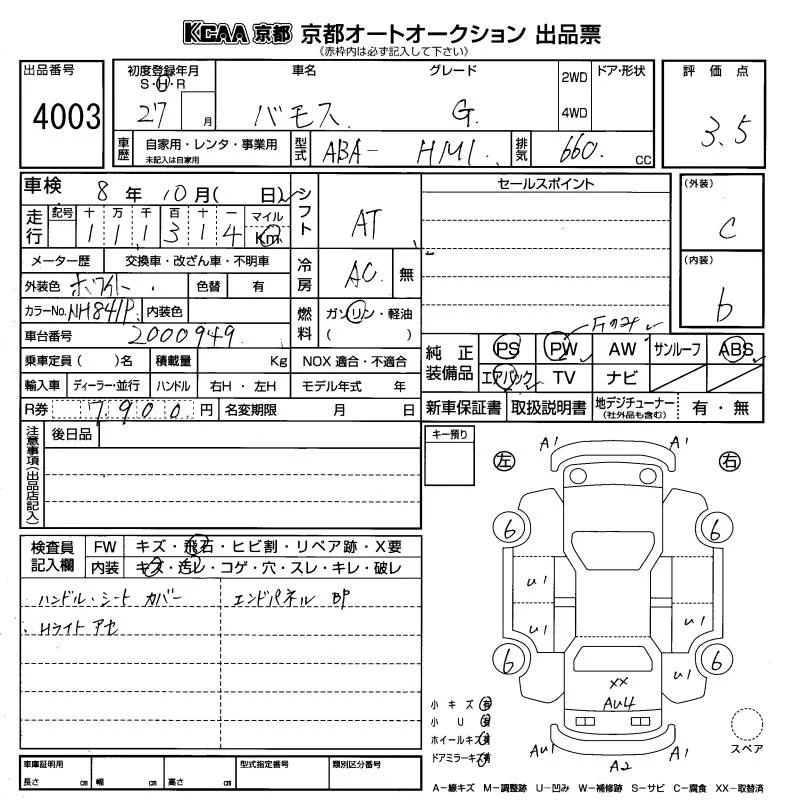 KCAA 京都 京都オートオークション 出品票
《赤枠内は必ず記入して下さい》
出品番号 4003
初度登録年月 S・H・R 27 月
車名 バモス
グレード G
2WD 4WD
ドア・形状
評価点 3.5
車歴 自家用・レンタ・事業用 未記入は自家用
型式 ABA- HM1
排気 660. CC
車検 8年 10月( 日)
シフト AT
セールスポイント
(外装) C
(内装) b
走行 記号 十 万 千 百 十 一 マイル Km
1 1 1 3 1 4
メーター歴 交換車・改ざん車・不明車
冷房 AC 無
外装色 ホワイト 色替 有
カラーNo. NH841P 内装色
燃料 ガソリン・軽油 ( )
車台番号 2000949
乗車定員( )名 積載量 Kg NOX 適合・不適合
輸入車 ディーラー・並行 ハンドル 右H・左H モデル年式 年
R券 7900円 名変期限 月 日
純正装備品 PS PW AW サンルーフ ABS
Fのみ
エアバック TV ナビ
新車保証書 取扱説明書 地デジチューナー (社外品も含む) 有・無
注意事項(出品店記入) 後日品
キー預り
検査員記入欄 FW キズ・飛石・ヒビ割・リペア跡・X要
内装 キズ・汚レ・コゲ・穴・スレ・キレ・破レ
ハンドル・シート カバー エンドパネル BP
Hライト アセ
左 右
A1 A1
6 6
U1
U1 U1
6 U1 6
XX
AU4
AU1 A2 A1
小キズ 有
小U 有
ホイールキズ 有
ドアミラーキズ 有
スペア
A−線キズ M−調整跡 U−凹み W−補修跡 S−サビ C−腐食 XX−取替済
車庫証明用 長さ cm 幅 cm 高さ cm
型式指定番号 類別区分番号